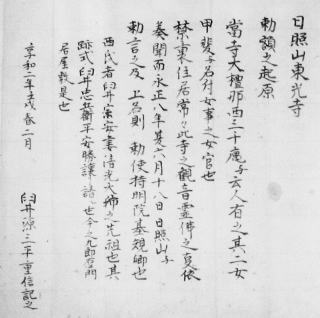 日照山東光寺
勅額之起原
當寺大檀那西三十庵与云人有之其二女
甲斐与名付女事之女官也
禁裏住居常〻此寺之觀音靈佛之
奏聞而永正八年 六月十八日日照山与
勅言之及上名則 勅使持明院基規卿也
西氏者臼井 安 清光大姉之先祖也其
跡式臼井忠兵衛平安勝讓諸 世今之九郎右衛門
居屋敷是也
享和二年壬戌春二月
臼井源三平重信記之